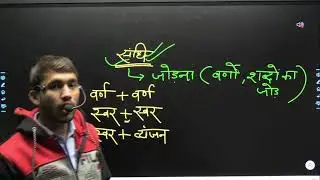 संधि
जोड़ना ( वर्णो, शब्दो का
जोड़ )
वर्ण + वर्ण
स्वर + स्वर
स्वर + व्यंजन